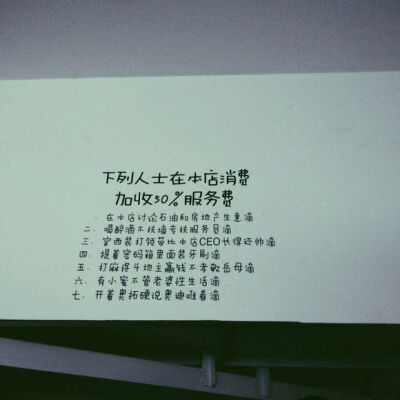 下列人士在本店消费
加收50%服务费
一、在本店讨论石油和房地产生意滴
二、喝醉酒不扶墙专扶服务员滴
三、穿西装打领带比本店CEO长得还帅滴
四、提着密码箱里面装牙刷滴
五、打麻将斗地主赢钱不孝敬岳母滴
六、有小蜜不管老婆性生活滴
七、开着奥拓硬说奥迪难看滴